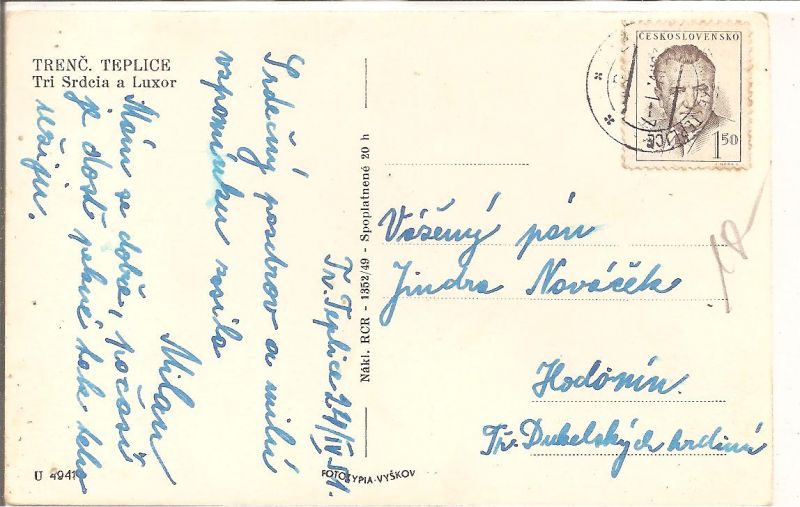 TRENČ. TEPLICE
Tri Srdcia a Luxor
Tr. Teplice 24/IV 51.
Srdečný pozdrav a milú
vzpomínku zasílá
Milan
Mám se dobře, počasí
je dost pěkné tak toho
užiju.
Nákl. RCR - 1352/49 - Spoplatnené 20 h
FOTOTYPIA-VYŠKOV
U 4941
ČESKOSLOVENSKO
1 50
Vážený pán
Jindra Nováček
Hodonín.
Tř. Dukelských hrdinů